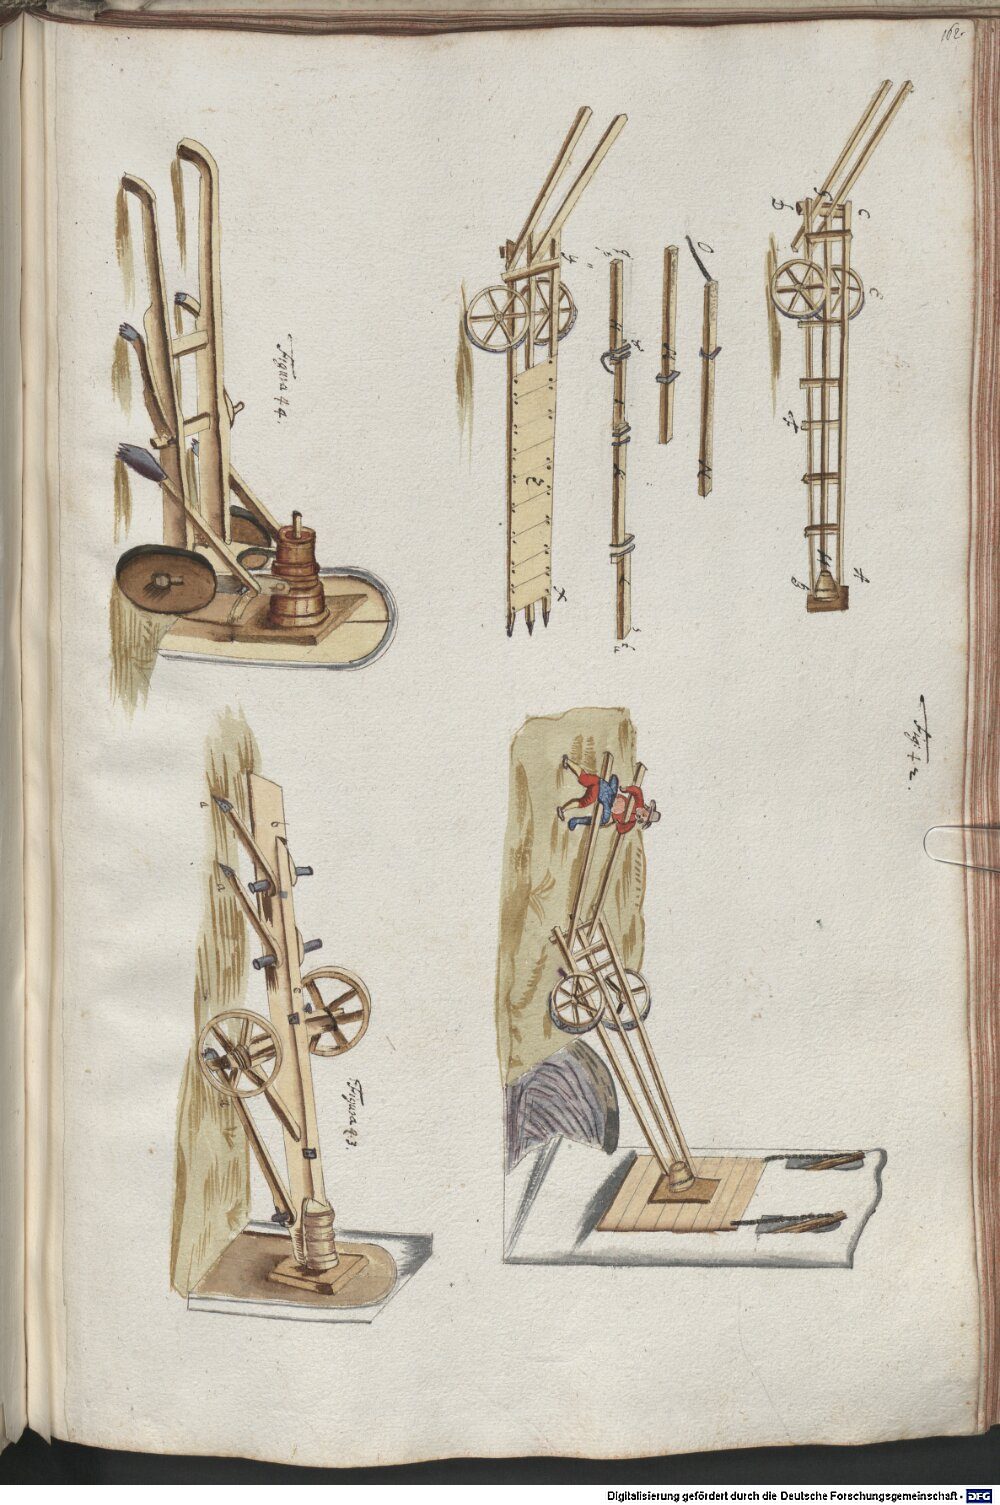 162
Fig: 42.
C
G
D
E
F
A
B
O
N
M
H
I
K
L
y
x
Z
Figura 44.
Figura 43.
a
b
a
c
Digitalisierung gefördert durch die Deutsche Forschungsgemeinschaft - DFG